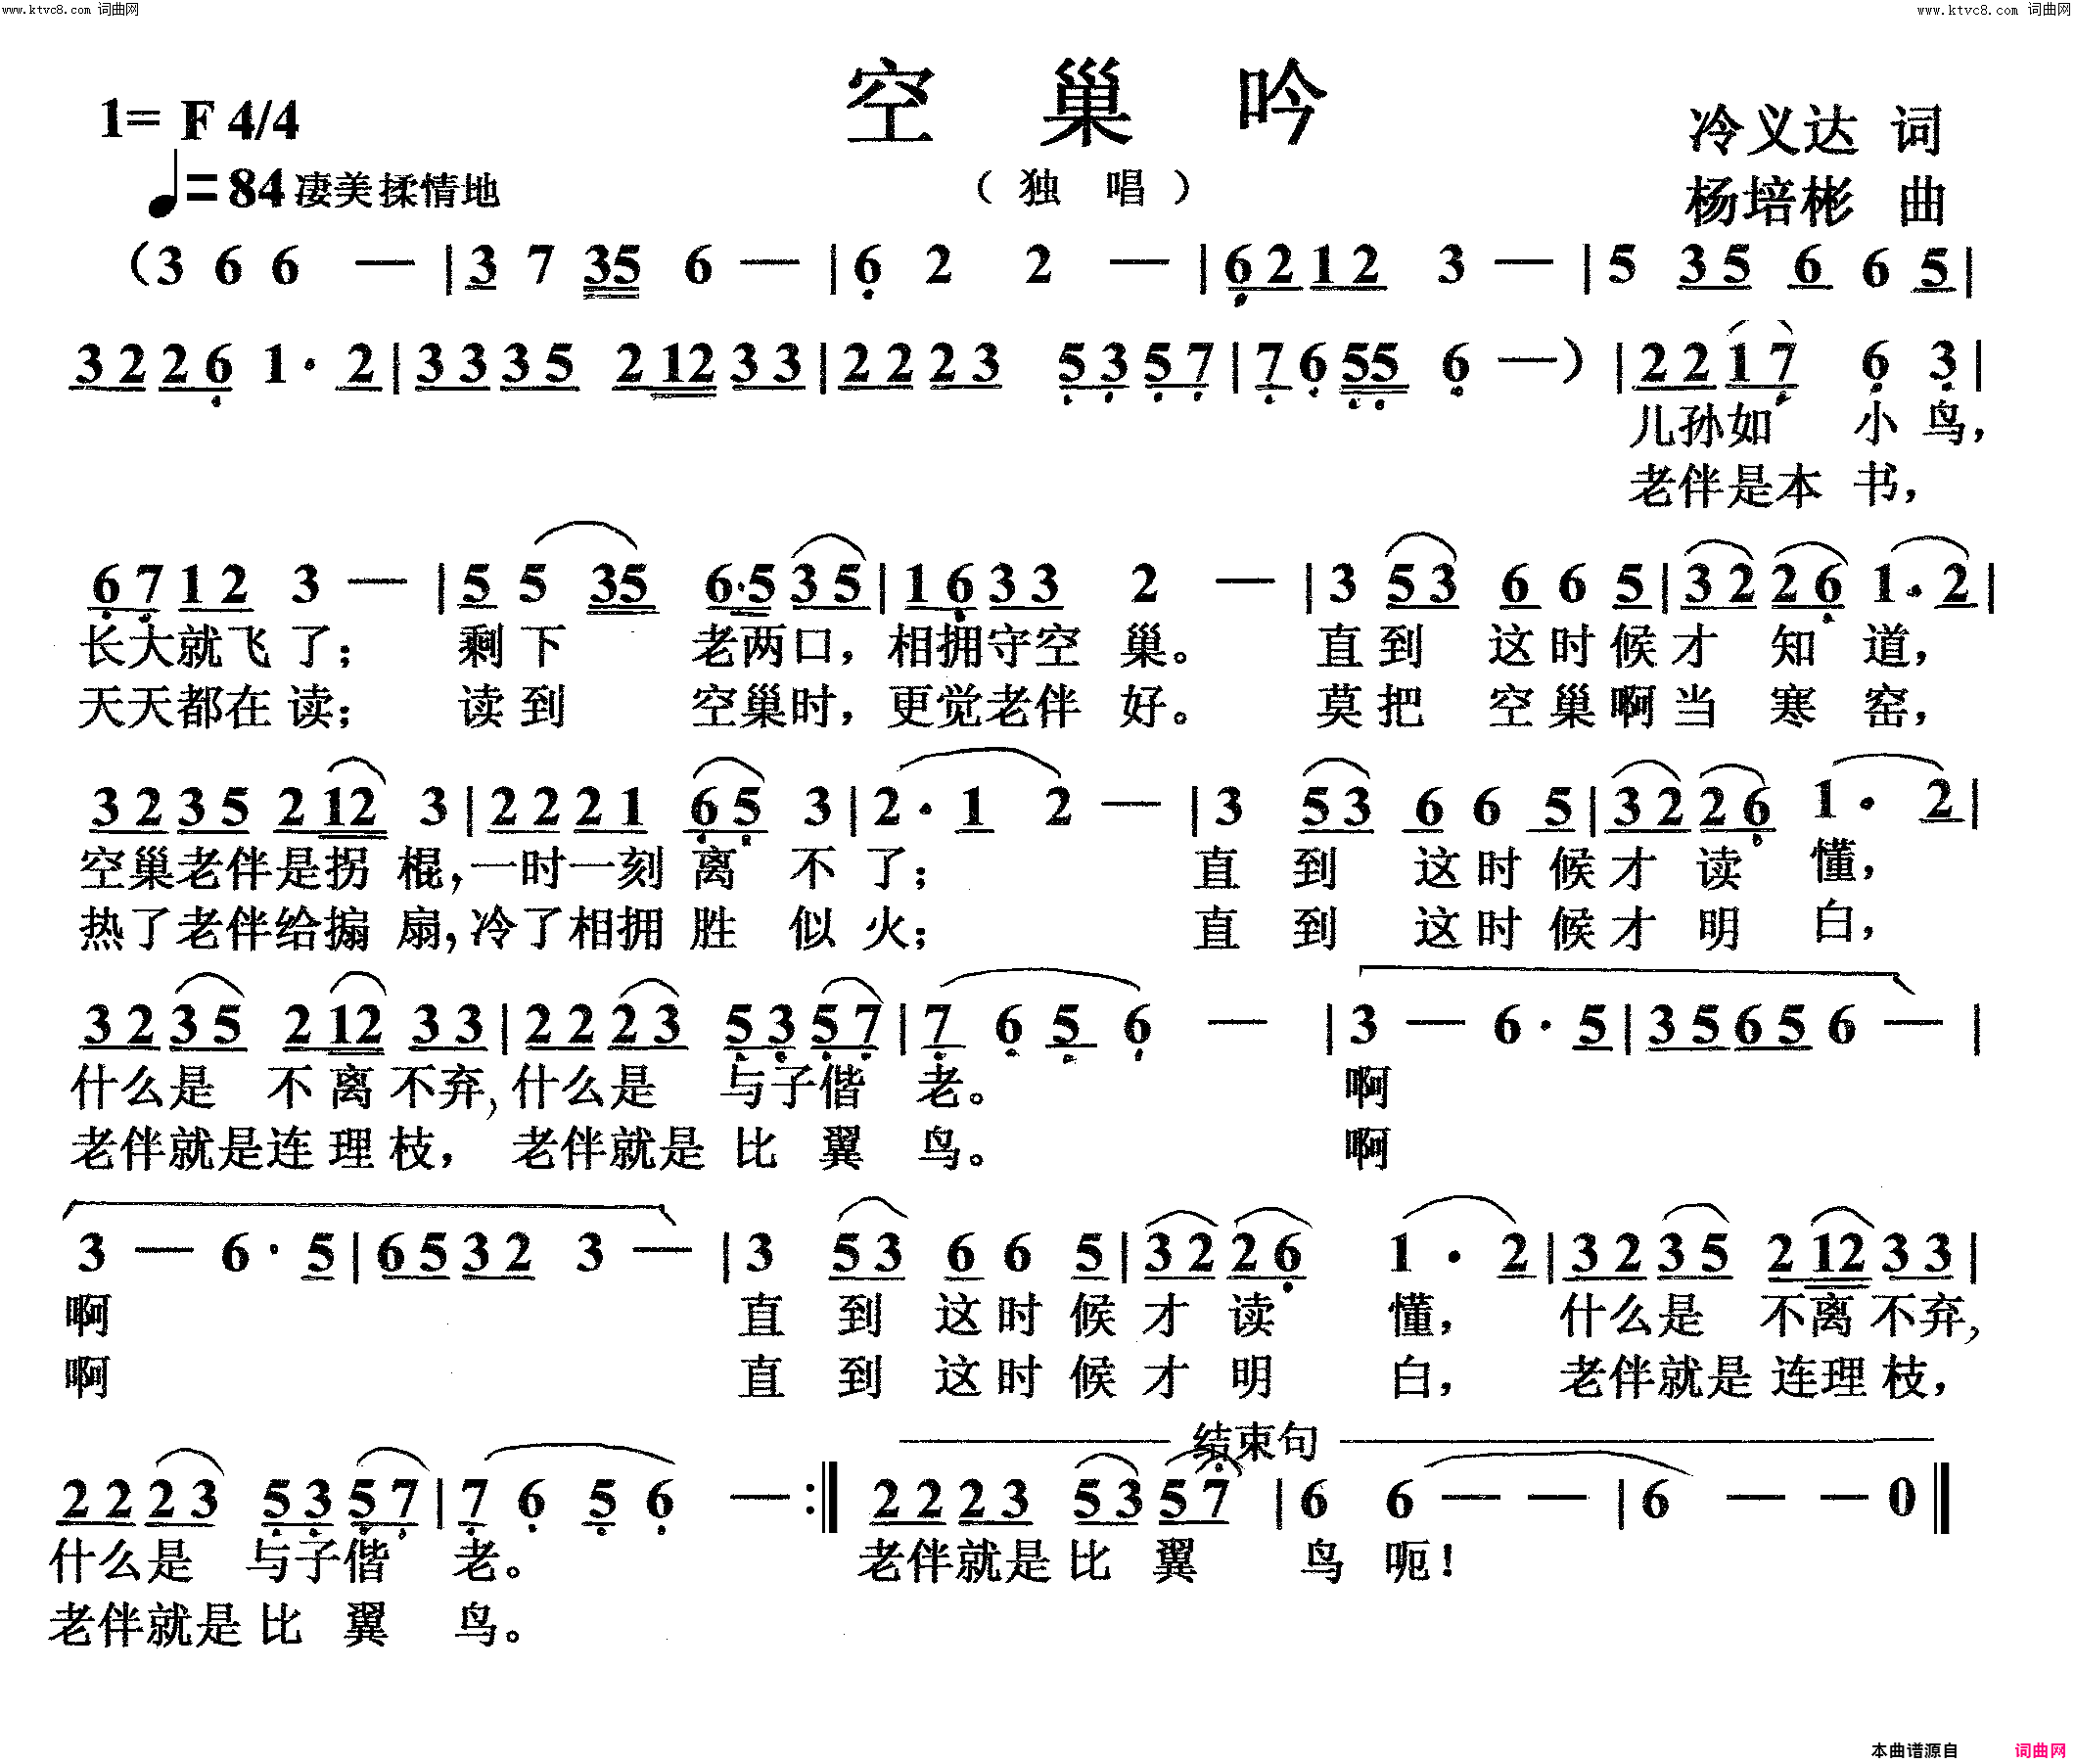 www.ktvc8.com 词曲网 www.ktvc8.com 词曲网
空 巢 吟
1= F 4/4 冷义达 词
♩=84 凄美揉情地 （独 唱） 杨培彬 曲
（3 6 6 — | 3 7 35 6 — | 6 2 2 — | 6 2 1 2 3 — | 5 3 5 6 6 5 |
3 2 2 6 1· 2 | 3 3 3 5 2 12 3 3 | 2 2 2 3 5 3 5 7 | 7 6 55 6 —） | 2 2 1 7 6 3 |
儿孙如 小 鸟，
老伴是本 书，
6 7 1 2 3 — | 5 5 35 6·5 3 5 | 1 6 3 3 2 — | 3 5 3 6 6 5 | 3 2 2 6 1· 2 |
长大就飞了； 剩 下 老两口，相拥守空 巢。 直 到 这 时 候 才 知 道，
天天都在读； 读 到 空巢时，更觉老伴 好。 莫 把 空 巢 啊 当 寒 窑，
3 2 3 5 2 12 3 | 2 2 2 1 6 5 3 | 2· 1 2 — | 3 5 3 6 6 5 | 3 2 2 6 1· 2 |
空巢老伴是拐 棍，一时一刻 离 不 了； 直 到 这 时 候 才 读 懂，
热了老伴给搧 扇，冷了相拥 胜 似 火； 直 到 这 时 候 才 明 白，
3 2 3 5 2 12 3 3 | 2 2 2 3 5 3 5 7 | 7 6 5 6 — | 3 — 6· 5 | 3 5 6 5 6 — |
什么是 不 离 不弃，什么是 与子偕 老。 啊
老伴就是连 理 枝， 老伴就是 比 翼 鸟。 啊
3 — 6· 5 | 6 5 3 2 3 — | 3 5 3 6 6 5 | 3 2 2 6 1· 2 | 3 2 3 5 2 12 3 3 |
啊 直 到 这 时 候 才 读 懂， 什么是 不离不弃，
啊 直 到 这 时 候 才 明 白， 老伴就是 连理枝，
结束句
2 2 2 3 5 3 5 7 | 7 6 5 6 — :‖ 2 2 2 3 5 3 5 7 | 6 6 — — | 6 — — 0 ‖
什么是 与子偕 老。 老伴就是 比 翼 鸟 呃！
老伴就是 比 翼 鸟。
本曲谱源自 词曲网